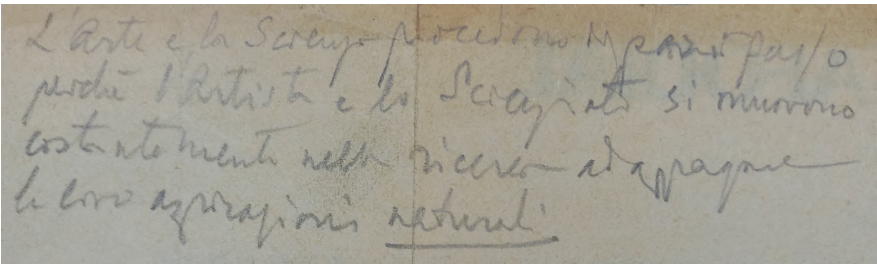 L'Arte e la Scienza procedono di pari passo
perchè l'Artista e lo Scienziato si muovono
costantemente nella ricerca ad appagare
le loro aspirazioni naturali